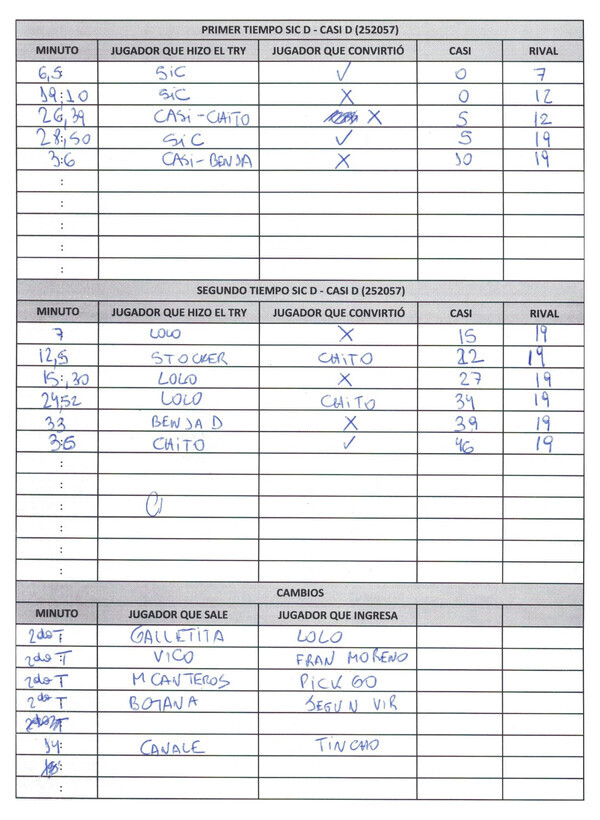 PRIMER TIEMPO SIC D - CASI D (252057)
MINUTO JUGADOR QUE HIZO EL TRY JUGADOR QUE CONVIRTIÓ CASI RIVAL
6,5: SIC ✓ 0 7
19:10 SIC X 0 12
26,39 CASI-CHITO X 5 12
28:,50 SIC ✓ 5 19
3:6 CASI-BENJA X 10 19
:
:
:
:
:
SEGUNDO TIEMPO SIC D - CASI D (252057)
MINUTO JUGADOR QUE HIZO EL TRY JUGADOR QUE CONVIRTIÓ CASI RIVAL
7 LOLO X 15 19
12,5 STOCKER CHITO 22 19
15:,30 LOLO X 27 19
24,52 LOLO CHITO 34 19
33 BENJA D X 39 19
3:5 CHITO ✓ 46 19
:
:
:
:
:
:
CAMBIOS
MINUTO JUGADOR QUE SALE JUGADOR QUE INGRESA
2do T GALLETITA LOLO
2do :T VICO FRAN MORENO
2do T M CANTEROS PICK GO
2do T BOTANA SEGUN VIR
14: CANALE TINCHO
: